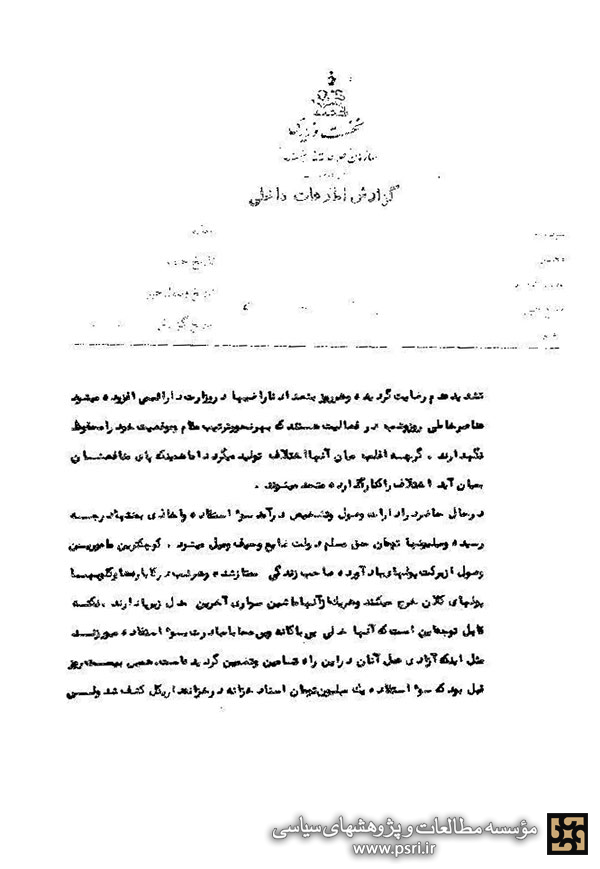 نخست وزیری
سازمان
گزارش اطلاعات داخلی
شماره
تاریخ
تاریخ وصول خبر
تاریخ گزارش
تشدید عدم رضایت گردیده و هرروز بتعداد ناراضیها در وزارت دارائی افزوده میشود
عناصر خاطی روز و شب در فعالیت هستند که بهر نحو و ترتیب مقام و موقعیت خود را محفوظ
نگهدارند . گرچه اغلب میان آنها اختلاف تولید میگردد اما همینکه پای منافعشان
بمیان آید اختلاف را کنار گذارده متحد میشوند .
درحال حاضر در ادارات وصول و تشخیص درآمد سوء استفاده و اخاذی بمنتها درجه
رسیده و میلیونها تومان حق مسلم دولت ضایع و حیف و میل میشود . کوچکترین مامورین
وصول از برکت پولهای بادآورده صاحب زندگی ممتاز شده و هر شب در کاباره ها و کلوپها
پولهای کلان خرج میکنند و هریک از آنها ماشین سواری آخرین مدل زیرپا دارند . نکته
قابل توجه این است که آنها خیلی بی باکانه و بی محابا مبادرت بسوء استفاده میورزند
مثل اینکه آزادی عمل آنان در این راه تضمین گردیده است. همین بیست روز
قبل بود که سوء استفاده یک میلیون تومان اسناد خزانه در خزانه داری کل کشف شد ولی
مؤسسه مطالعات و پژوهشهای سیاسی
www.psri.ir